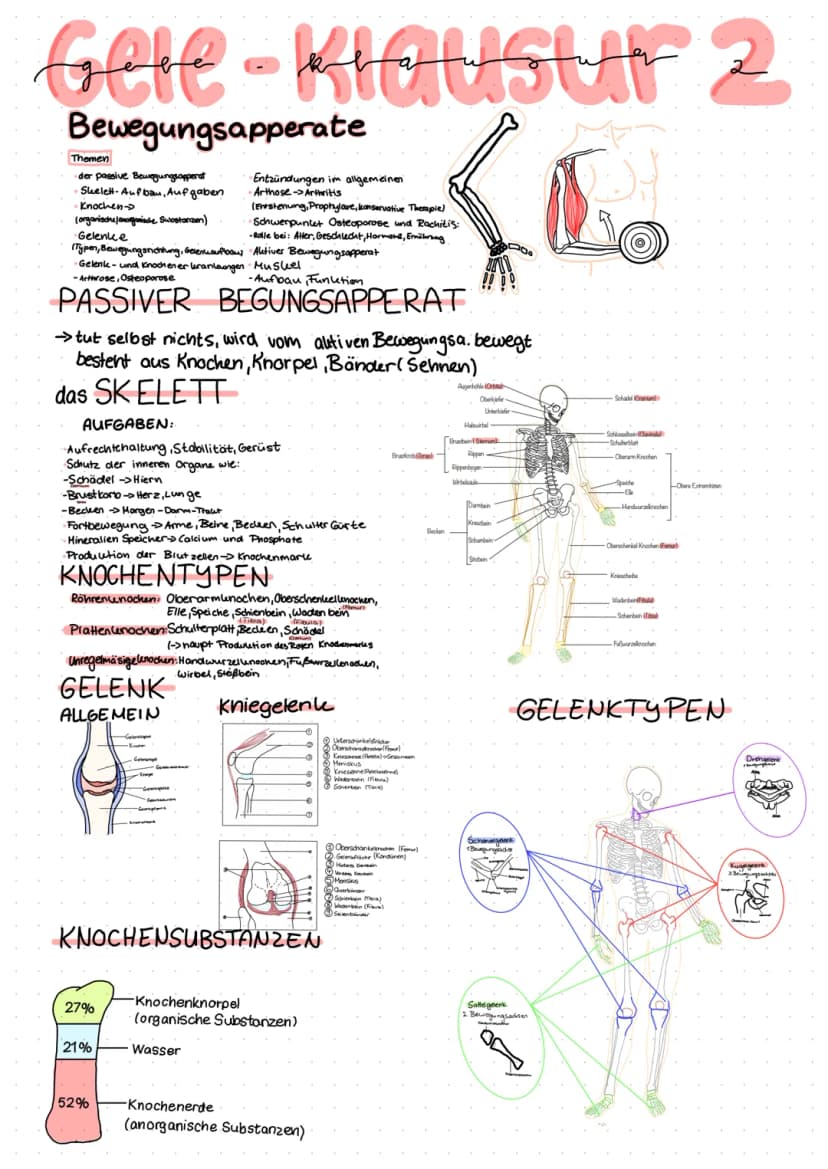 Gele - Klausur 2
gele - klausur 2
Bewegungsapperate
Themen
· der passive Bewegungsapperat
· Skelett-Aufbau, Aufgaben
· Knochen->
(organische/anorganische Substanzen)
· Gelenke
(Typen, Bewegungsrichtung, Gelenkaufbau)
· Gelenk- und Knochenerkrankungen
- Arthrose, Osteoporose
· Entzündungen im allgemeinen
· Arthose -> Arthritis
(Entstehung, Prophylaxe, konservative Therapie)
· Schwerpunkt Osteoporose und Rachitis:
-Rolle bei: Alter, Geschlecht, Hormone, Ernährung
· Aktiver Bewegungsapperat
· Muskel
-Aufbau, Funktion
PASSIVER BEGUNGSAPPERAT
-> tut selbst nichts, wird vom aktiven Bewegungsa. bewegt
besteht aus Knochen, Knorpel, Bänder (Sehnen)
das SKELETT
AUFGABEN:
· Aufrechthaltung, Stabilität, Gerüst
· Schutz der inneren Organe wie:
-Schädel -> Hiern
-Brustkorb -> Herz, Lunge
-Becken -> Margen-Darm-Trakt
· Fortbewegung -> Arme, Beine, Becken, Schulter Gürte
· Mineralien Speicher -> Calcium und Phosphate
· Produktion der Blutzellen -> Knochenmark
Augenhöhle (Orbita)
Oberkiefer
Unterkiefer
Halswirbel
Brustbein (Sternum)
Rippen
Rippenbogen
Wirbelsäule
Darmbein
Kreuzbein
Schambein
Sitzbein
Becken
Schädel (Cranium)
Schlüsselbein (Clavicula)
Schulterblatt
Oberarm Knochen
Speiche
Elle
Handwurzelknochen
Obere Extremitäten
Oberschenkel Knochen (Femur)
Kniescheibe
Wadenbein (Fibula)
Schienbein (Tibia)
Fußwurzelknochen
KNOCHENTYPEN
Röhrenknochen: Oberarmknochen, Oberschenkelknochen,
(Femur)
Elle, Speiche, Schienbein, Waden bein
Plattenknochen: Schulterplatt, Becken, Schädel
(-> haupt Produktion des Roten Knochenmarks
Unregelmäsigeknochen: Handwurzelknochen, Fußwurzelknochen,
Wirbel, Steißbein
GELENK
ALLGEMEIN
Kniegelenk
① Unterschenkelstrecker
② Oberschenkelknochen (Femur)
④ Meniskus
⑥ Wadenbein (Fibula)
⑦ Schienbein (Tibia)
① Oberschenkelknochen (Femur)
② Gelenkfläche (Kondylen)
③ Hinteres Kreuzband
④ Vorderes Kreuzband
⑤ Meniskus
⑥ Querbänder
⑦ Schienbein (Tibia)
⑧ Wadenbein (Fibula)
⑨ Seitenbänder
GELENKTYPEN
Drehgelenk
Scharniergelenk
1 Bewegungsachse
Kugelgelenk
3 Bewegungsachsen
Sattelgelenk
2 Bewegungsachsen
KNOCHENSUBSTANZEN
27%
Knochenknorpel
(organische Substanzen)
21%
Wasser
52%
Knochenerde
(anorganische Substanzen)